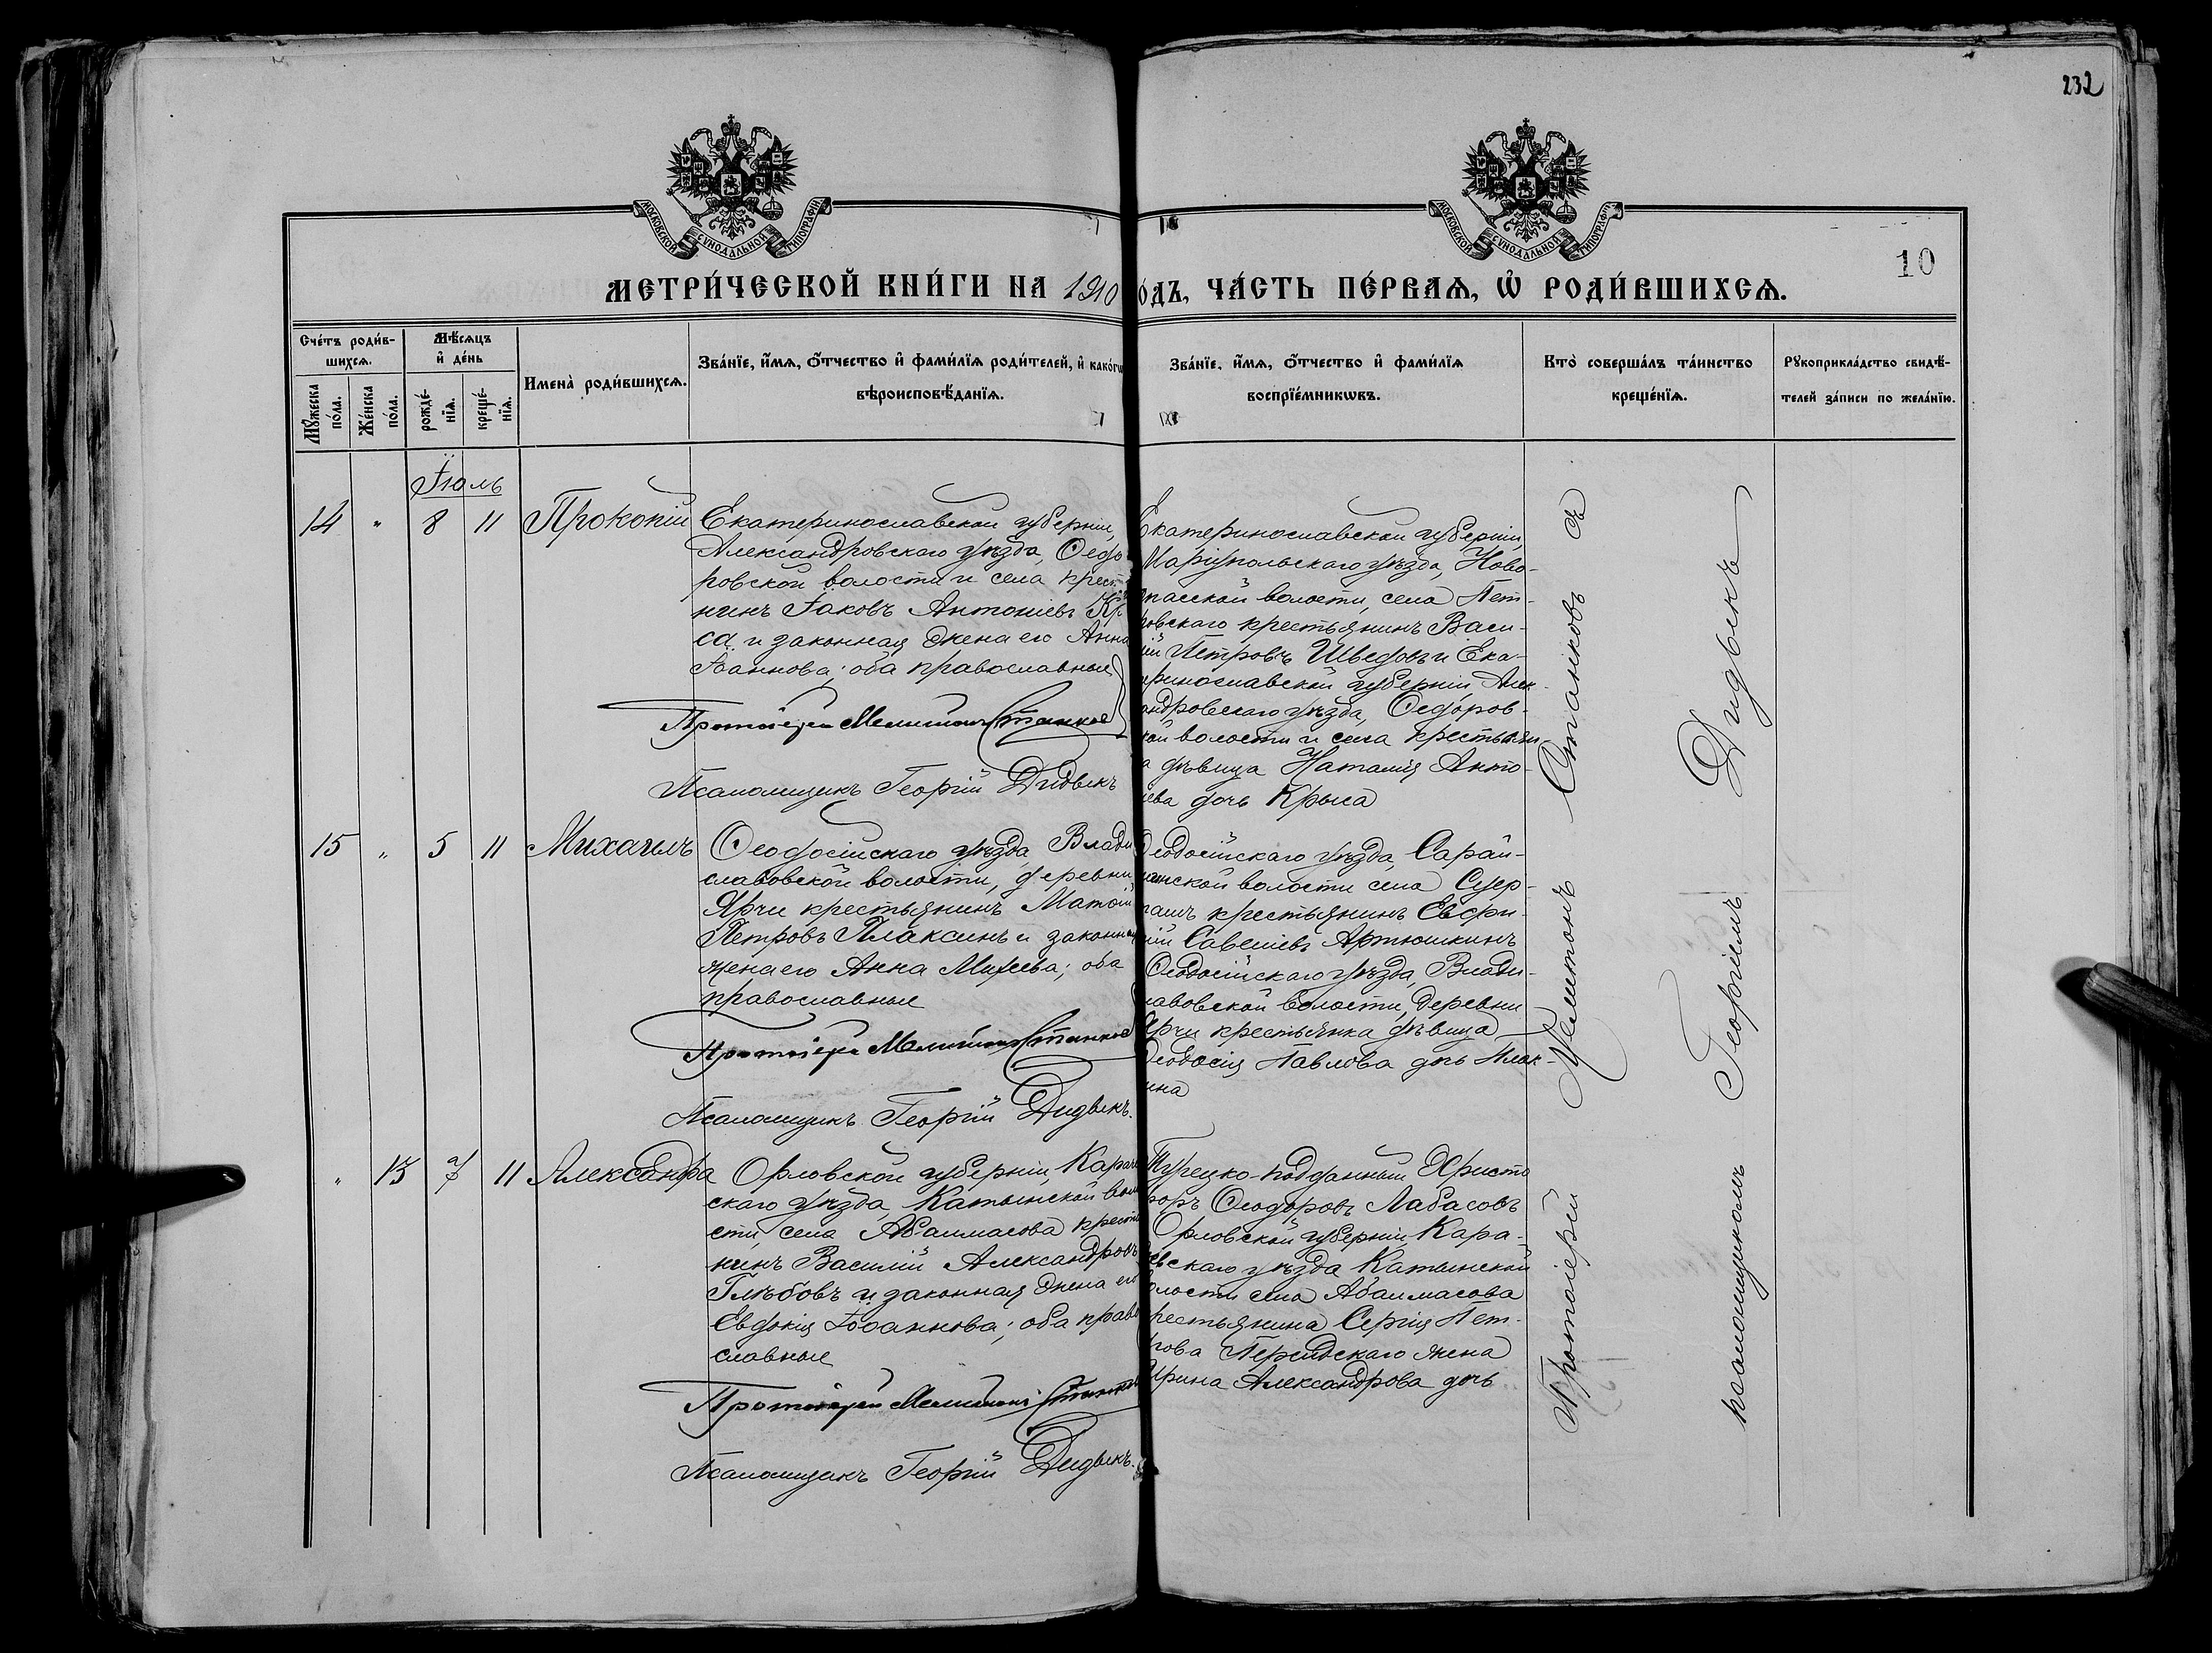 232
МОСКОВСКОЙ СѴНОДАЛЬНОЙ ТИПОГРАФІИ
МОСКОВСКОЙ СѴНОДАЛЬНОЙ ТИПОГРАФІИ
10
МЕТРИ́ЧЕСКОЙ КНИ́ГИ НА 1910
О́ДЪ, ЧА́СТЬ ПЕ́РВАѦ, Ѡ҆ РОДИ́ВШИХСѦ.
Сче́тъ роди́в-
шихсѧ.
Мꙋ́жеска по́ла.
Же́нска по́ла.
Мѣ́сѧцъ
и҆ де́нь
рожде́-
нїѧ.
креще́-
нїѧ.
Имена̀ роди́вшихсѧ.
Зва́нїе, и҆́мѧ, ѻ҆́тчество и҆ фами́лїѧ роди́телей, и҆ како́гѡ
вѣроисповѣ́данїѧ.
Зва́нїе, и҆́мѧ, ѻ҆́тчество и҆ фами́лїѧ
воспрїе́мникѡвъ.
Кто̀ соверша́лъ та́инство
креще́нїѧ.
Рꙋкоприкла́дство свидѣ́-
телей за́писи по жела́нїю.
Іюль
14 " 8 11 Прокопій
Екатеринославской губерніи,
Александровскаго уѣзда, Ѳедо
ровской волости и села крест
нинъ Іаковъ Антоніевъ Кр
са и законная жена его Анна
Іоаннова; оба православные
Протоіерей Мелитонъ Станков
Псаломщикъ Георгій Дидыкъ
Екатеринославской губерніи,
Маріупольскаго уѣзда, Ново-
пасской волости, села Пет-
ровскаго крестьянинъ Васи-
ій Петровъ Шведовъ и Ека-
ринославской губерніи Алек-
андровскаго уѣзда, Ѳедоров-
кой волости и села крестьян-
а дѣвица Наталія Анто-
іева дочь Крыса
15 " 5 11 Михаилъ
Ѳеодосійскаго уѣзда Влади
славовской волости, деревни
Ярчи крестьянинъ Матѳій
Петровъ Плаксинъ и законная
жена его Анна Михеева; оба
православные
Протоіерей Мелитонъ Станков
Псаломщикъ Георгій Дидыкъ.
Ѳеодосійскаго уѣзда, Сарай-
минской волости села Суер-
ташъ крестьянинъ Евфи-
мій Савеліевъ Артюшкинъ
Ѳеодосійскаго уѣзда, Влади-
лавовской волости, деревни
Ярчи крестьянка дѣвица
Ѳеодосія Павлова дочь Плак-
ина
" 13 7 11 Александра
Орловской губерніи, Караче
скаго уѣзда, Катынской воло
сти, села Абалмасова крестья
нинъ Василій Александровъ
Глѣбовъ и законная жена его
Евдокія Іоаннова; оба право
славные
Протоіерей Мелитонъ Станков
Псаломщикъ Георгій Дидыкъ.
Турецко-подданный Христо
форъ Ѳеодоровъ Лабасовъ
Орловской губерніи, Кара-
чевскаго уѣзда Катынской
олости села Абалмасова
рестьянина Сергія Пет-
рова жена
Ирина Александрова дочь
Протоіерей Мелитонъ Станковъ съ
псаломщикомъ Георгіемъ Дидыкъ